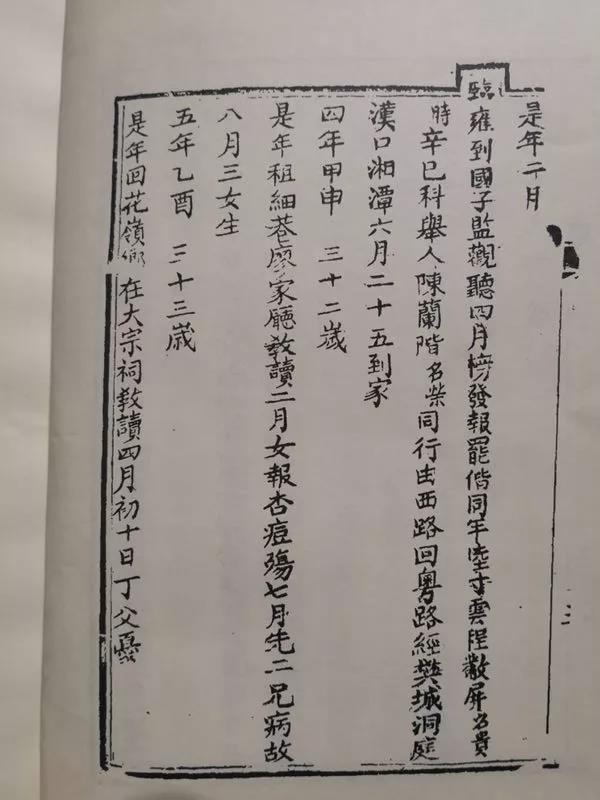 是年二月
臨雍到國子監觀聽四月榜發報罷偕同年陸寸雲陞敭屏名貴
時辛巳科舉人陳蘭階名榮同行由西路回粵路經樊城洞庭
漢口湘潭六月二十五到家
四年甲申 三十二歲
是年租細巷廖家廳敎讀二月女報杏痘殤七月先二兄病故
八月三女生
五年乙酉 三十三歲
是年回花嶺鄉在大宗祠敎讀四月初十日丁父憂